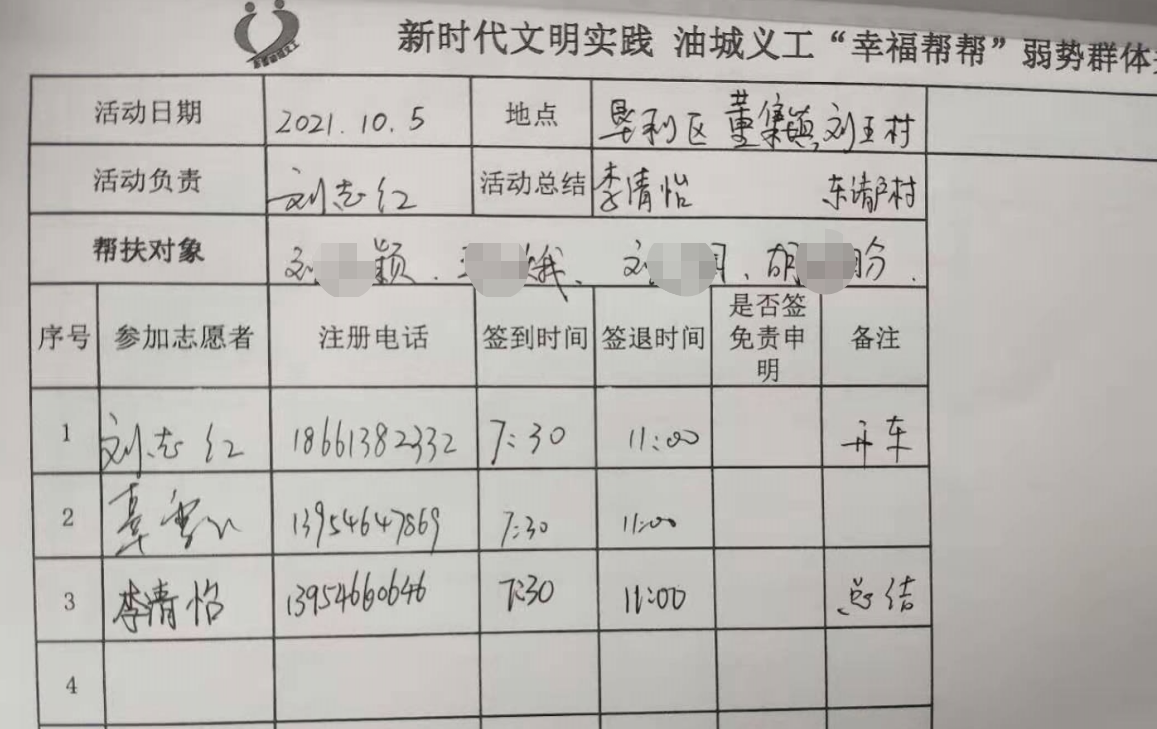 新时代文明实践 油城义工“幸福帮帮”弱势群体
活动日期 2021.10.5 地点 垦利区 董集镇,刘王村
活动负责 刘志红 活动总结 李清怡 东 村
帮扶对象 刘 颖. 娥、刘 、胡 盼.
序号 参加志愿者 注册电话 签到时间 签退时间 是否签免责申明 备注
1 刘志红 18661382332 7:30 11:00 开车
2 13954647869 7:30 11:00
3 李清怡 13954660646 7:30 11:00 总结
4